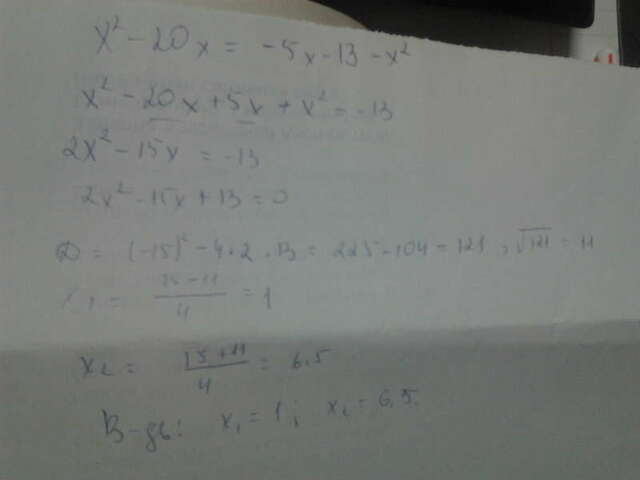 x² - 20x = -5x - 13 - x²
x² - 20x + 5x + x² = -13
2x² - 15x = -13
2x² - 15x + 13 = 0
D = (-15)² - 4·2·13 = 225 - 104 = 121, √121 = 11
x₁ = (15 - 11)/4 = 1
x₂ = (15 + 11)/4 = 6.5
В-дь: x₁ = 1; x₂ = 6,5.